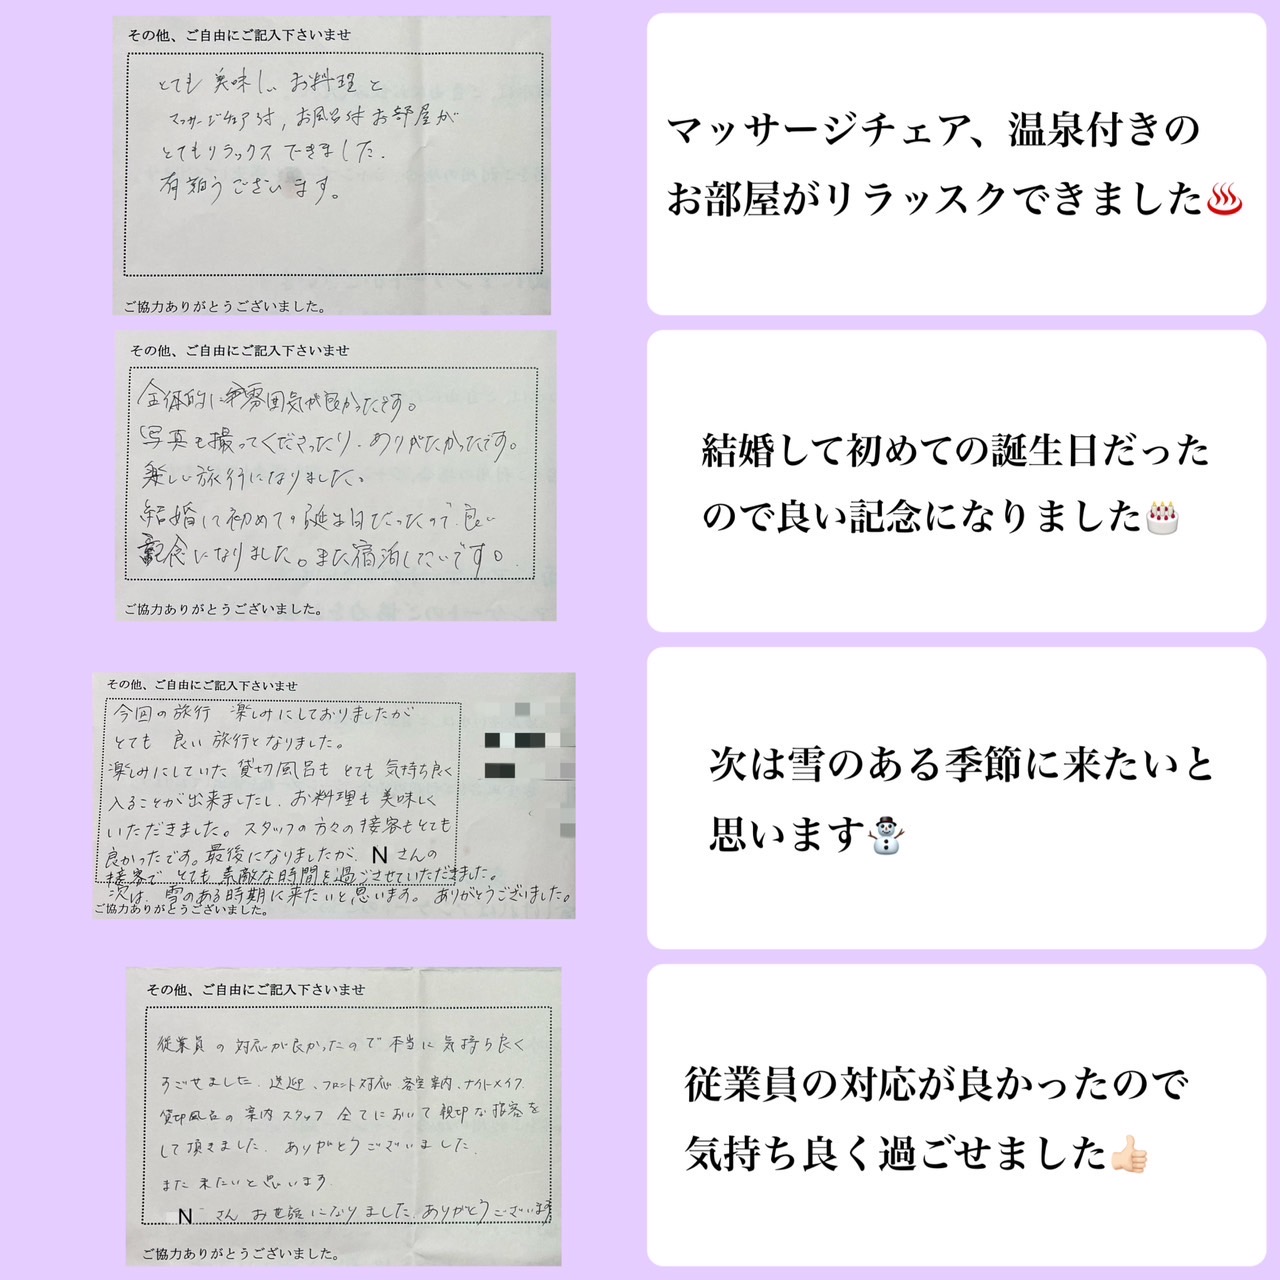 その他、ご自由にご記入下さいませ
とても 美味しい お料理と
マッサージチェア付、お風呂付お部屋が
とてもリラックスできました。
有難うございます。
ご協力ありがとうございました。
マッサージチェア、温泉付きの
お部屋がリラッスクできました♨️
その他、ご自由にご記入下さいませ
全体的に雰囲気が良かったです。
写真も撮ってくださったり、ありがたかったです。
楽しい旅行になりました。
結婚して初めての誕生日だったので、良い
記念になりました。また宿泊したいです。
ご協力ありがとうございました。
結婚して初めての誕生日だった
ので良い記念になりました🎂
その他、ご自由にご記入下さいませ
今回の旅行 楽しみにしておりましたが
とても 良い 旅行となりました。
楽しみにしていた 貸切風呂も とても 気持ち良く
入ることが出来ましたし、お料理も 美味しく
いただきました。スタッフの方々の接客もとても
良かったです。最後になりましたが、Nさんの
接客で とても 素敵な時間を過ごさせていただきました。
次は、雪のある時期に来たいと思います。ありがとうございました。
ご協力ありがとうございました。
次は雪のある季節に来たいと
思います⛄
その他、ご自由にご記入下さいませ
従業員の対応が良かったので本当に気持ち良く
すごせました。送迎、フロント対応、客室案内、ナイトメイク、
貸切風呂の案内スタッフ 全てにおいて親切な接客を
して頂きました。ありがとうございました。
また来たいと思います
Nさん お世話になりました。ありがとうございます
ご協力ありがとうございました。
従業員の対応が良かったので
気持ち良く過ごせました👍🏻